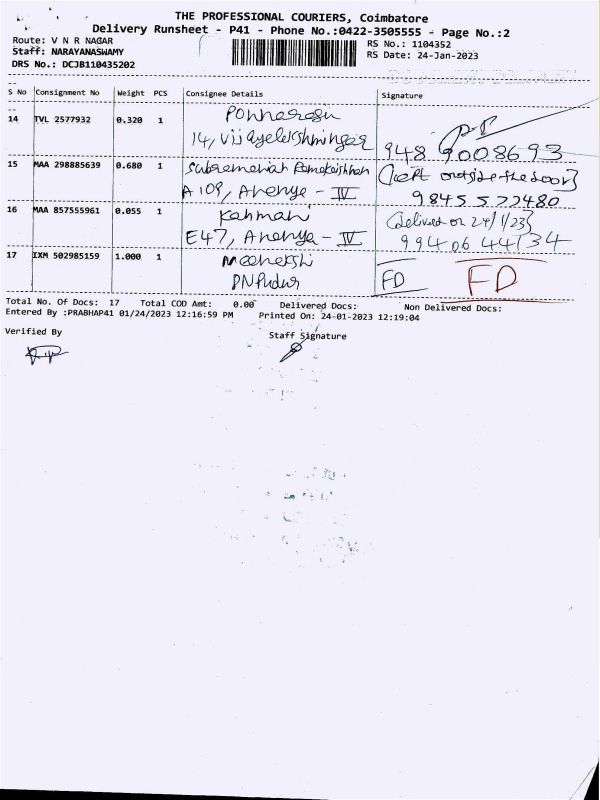 THE PROFESSIONAL COURIERS, Coimbatore
Delivery Runsheet - P41 - Phone No.:0422-3505555 - Page No.:2
Route: V N R NAGAR
RS No.: 1104352
Staff: NARAYANASWAMY
RS Date: 24-Jan-2023
DRS No.: DCJB110435202
S No Consignment No Weight PCS Consignee Details Signature
14 TVL 2577932 0.320 1 Ponnarasu
14, Vijayelekshminagar 948 9008693
15 MAA 298885639 0.680 1 Subramaniah Ramakrishnan (left outside the door)
A 109, Ananya - IV 9845 572480
16 MAA 857555961 0.055 1 Kahmani (delived on 24/1/23)
E47, Ananya - IV 99406 44134
17 IXM 502985159 1.000 1 Meenekshi
PN Pudur FD FD
Total No. Of Docs: 17 Total COD Amt: 0.00 Delivered Docs: Non Delivered Docs:
Entered By :PRABHAP41 01/24/2023 12:16:59 PM Printed On: 24-01-2023 12:19:04
Verified By Staff Signature